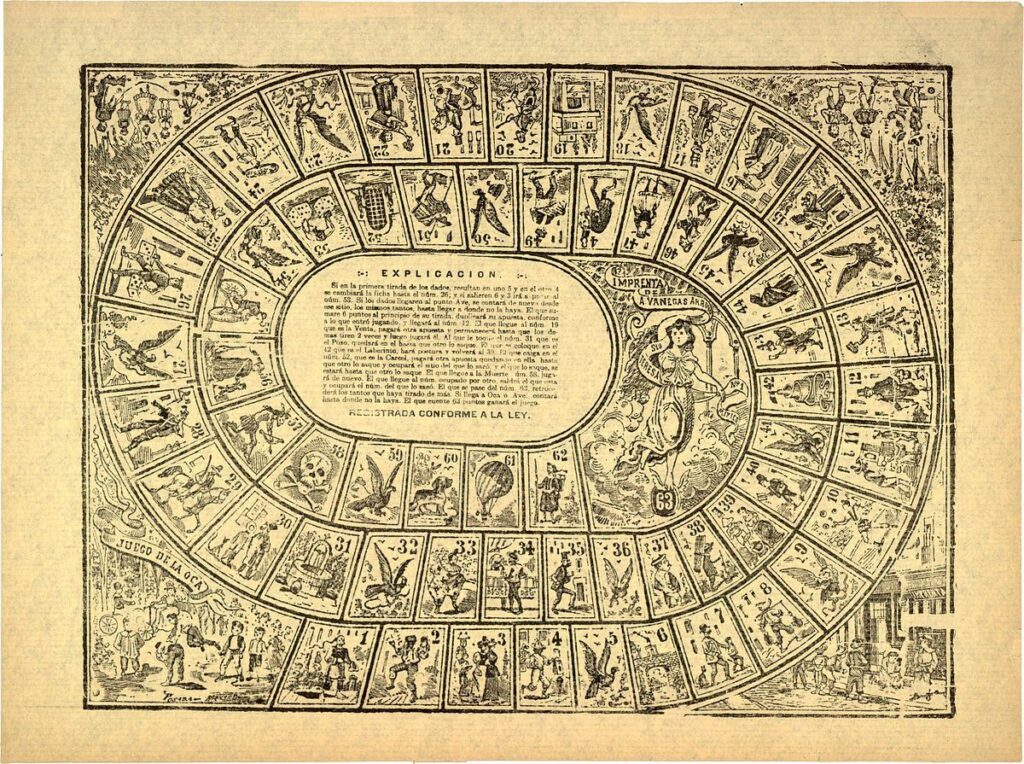 EXPLICACION.
Si en la primera tirada de los dados, resultan en uno 5 y en el otro 4
se cambiará la ficha hasta el núm. 26; y si salieren 6 y 3 irá a parar al
núm. 53. Si los dados llegaren al punto Ave, se contará de nuevo desde
ese sitio, los mismos tantos, hasta llegar a donde no la haya. El que su-
mare 6 puntos al principio de su tirada, duplicará su apuesta, conforme
a lo que entró jugando, y llegará al núm. 12. El que llegue al núm. 19
que es la Venta, pagará otra apuesta y permanecerá hasta que los de-
mas tiren 2 veces y luego jugará él. Al que le toque el núm. 31 que es
el Pozo, quedará en él hasta que otro lo saque. El que se coloque en el
42 que es el Laberinto, hará postura y volverá al 39. El que caiga en el
núm. 52, que es la Carcel, pagará otra apuesta quedando en ella hasta
que otro lo saque y ocupará el sitio del que lo sacó, y el que lo saque, se
estará hasta que otro lo saque El que llegue a la Muerte núm. 58. juga-
rá de nuevo. El que llegue al núm. ocupado por otro, saldrá el que esta
y ocupará el núm. del que lo sacó. El que se pase del núm. 63, retroce-
derá los tantos que haya tirado de más. Si llega a Oca o Ave, contará
hasta donde no la haya. El que cuente 63 puntos ganará el juego.
REGISTRADA CONFORME A LA LEY.
IMPRENTA
DE
A. VANEGAS
JUEGO DE LA OCA
1
2
3
4
5
6
7
8
9
10
11
12
13
14
15
16
17
18
19
20
21
22
23
24
25
26
27
28
29
30
31
32
33
34
35
36
37
38
39
40
41
42
43
44
45
46
47
48
49
50
51
52
53
54
55
56
57
58
59
60
61
62
63